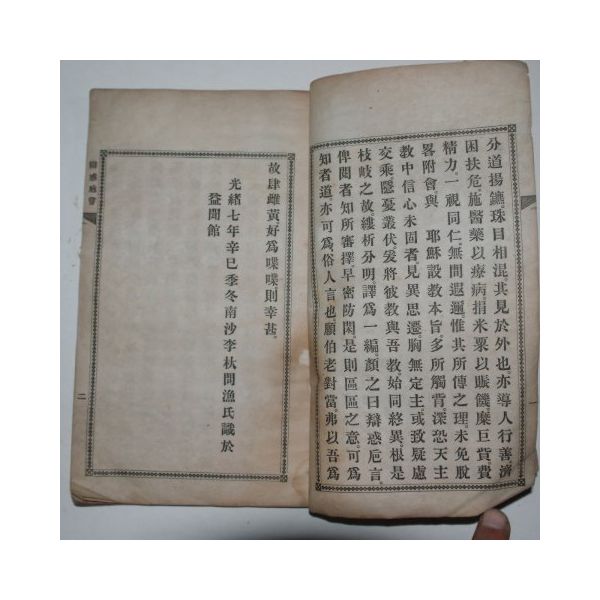 外道揚鑣珠目相混其見於外也亦導人行善濟
困扶危施醫藥以療病捐米粟以賑饑糜巨貲費
精力一視同仁無間遐邇惟其所傳之理未免脫
畧附會與 耶穌設敎本旨多所觸背深恐天主
敎中信心未固者見異思遷胸無定主或致疑慮
交乘隱憂叢伏爰將彼敎與吾敎始同終異根是
枝岐之故縷析分明譯爲一編顏之曰辯惑卮言
俾閱者知所審擇早密防閑是則區區之意可爲
知者道亦可爲俗人言也願伯老對當弗以吾爲
故肆雌黃好爲喋喋則幸甚
光緖七年辛巳季冬南沙李杕問漁氏識於
益聞館
二